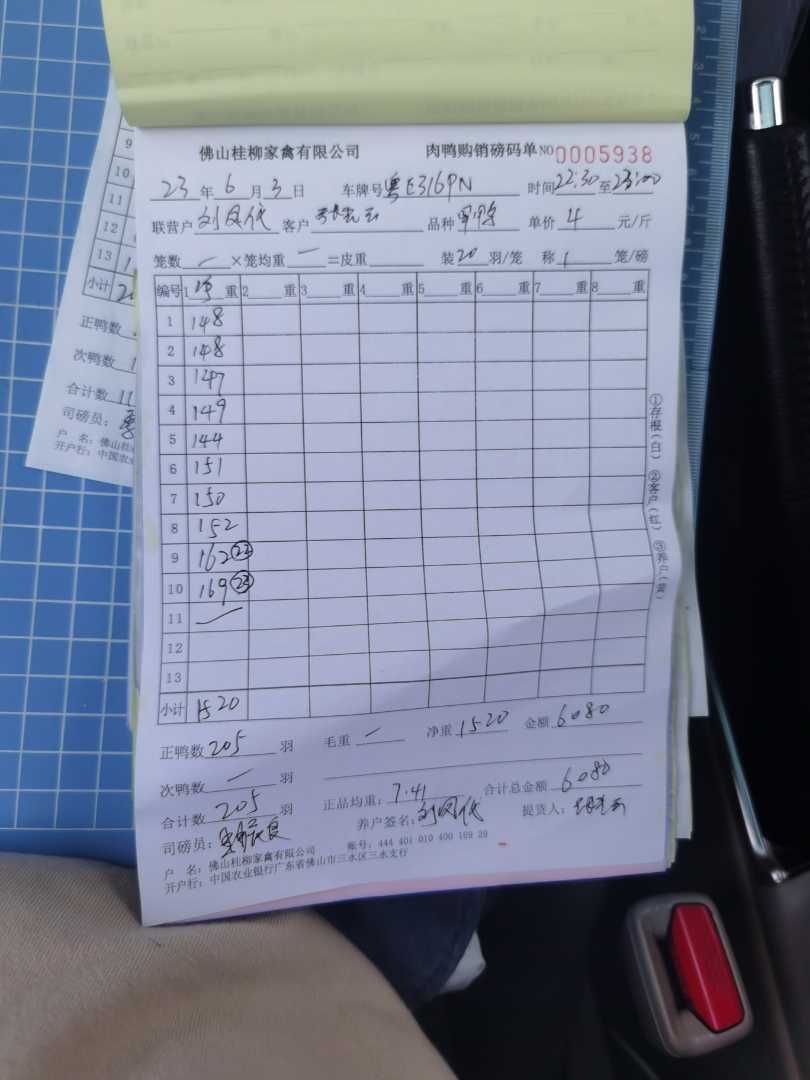 佛山桂柳家禽有限公司 肉鸭购销磅码单 NO 0005938
23 年 6 月 3 日 车牌号 粤E316PN 时间 22:30 至 23:00
联营户 刘凤依 客户 品种 单价 4 元/斤
笼数 — ×笼均重 — =皮重 装 20 羽/笼 称 1 笼/磅
编号 1 净 重 2 重 3 重 4 重 5 重 6 重 7 重 8 重
1 148
2 148
3 147
4 149
5 144
6 151
7 150
8 152
9 162 ㉒
10 169 ㉓
11 —
12
13
小计 1520
正鸭数 205 羽 毛重 — 净重 1520 金额 6080
次鸭数 — 羽
合计数 205 羽 正品均重: 7.41 合计总金额 6080
司磅员: 养户签名: 刘凤依 提货人:
户 名: 佛山桂柳家禽有限公司 账号: 444 401 010 400 169 29
开户行: 中国农业银行广东省佛山市三水区三水支行
①存根(白) ②客户(红) ③养户(黄)
9
10
11
12
13
小计
正鸭数
次鸭数
合计数 11
司磅员:
户 名: 佛山桂
开户行: 中国农业